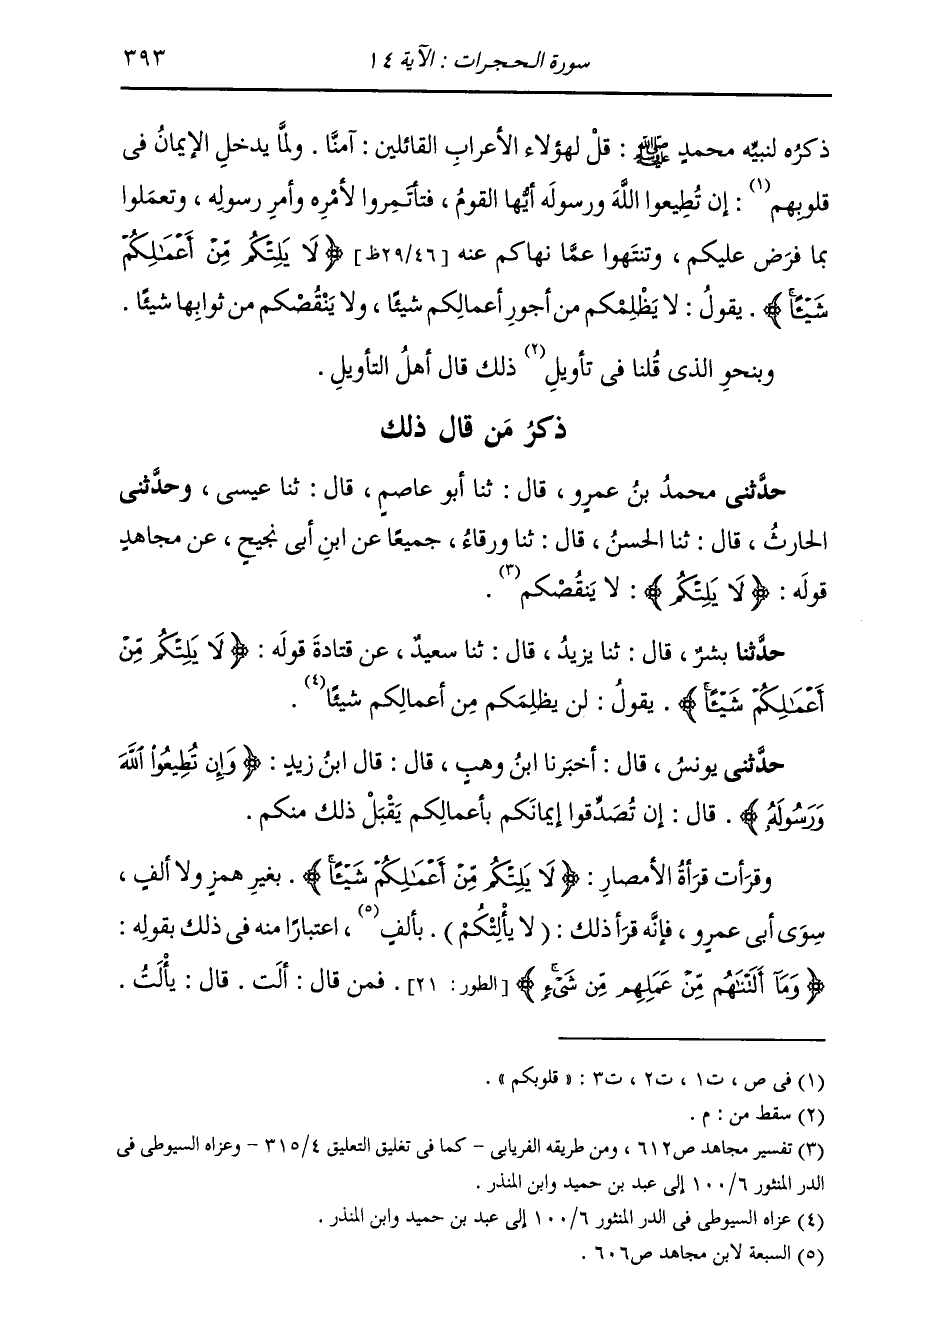 سورة الحجرات : الآية ١٤ ٣٩٣
ذكرُه لنبيِّه محمدٍ ﷺ : قلْ لهؤلاء الأعرابِ القائلين : آمنَّا . ولمَّا يدخلِ الإيمانُ فى
قلوبِهم(١) : إن تُطيعوا اللَّهَ ورسولَه أيُّها القومُ ، فتأتَمِروا لأمْرِه وأمرِ رسولِه ، وتعمَلوا
بما فرَض عليكم ، وتنتَهوا عمَّا نهاكم عنه [٢٩/٤٦ظ] ﴿ لَا يَلِتْكُم مِّنْ أَعْمَٰلِكُمْ
شَيْـًٔاۚ ﴾ . يقولُ : لا يَظْلِمْكم من أجورِ أعمالِكم شيئًا ، ولا يَنْقُصْكم من ثوابِها شيئًا .
وبنحوِ الذى قُلنا فى تأويلِ(٢) ذلك قال أهلُ التأويلِ .
ذكرُ مَن قال ذلك
حدَّثنى محمدُ بنُ عمرٍو ، قال : ثنا أبو عاصمٍ ، قال : ثنا عيسى ، وحدَّثنى
الحارثُ ، قال : ثنا الحسنُ ، قال : ثنا ورقاءُ ، جميعًا عن ابنِ أبى نجيحٍ ، عن مجاهدٍ
قولَه : ﴿ لَا يَلِتْكُم ﴾ : لا يَنقُصْكم(٣) .
حدَّثنا بشرٌ ، قال : ثنا يزيدُ ، قال : ثنا سعيدٌ ، عن قتادةَ قولَه : ﴿ لَا يَلِتْكُم مِّنْ
أَعْمَٰلِكُمْ شَيْـًٔاۚ ﴾ . يقولُ : لن يظلِمَكم مِن أعمالِكم شيئًا(٤) .
حدَّثنى يونسُ ، قال : أخبَرنا ابنُ وهبٍ ، قال : قال ابنُ زيدٍ : ﴿ وَإِن تُطِيعُوا۟ ٱللَّهَ
وَرَسُولَهُۥ ﴾ . قال : إن تُصَدِّقوا إيمانَكم بأعمالِكم يَقْبَلْ ذلك منكم .
وقرَأت قرأةُ الأمصارِ : ﴿ لَا يَلِتْكُم مِّنْ أَعْمَٰلِكُمْ شَيْـًٔاۚ ﴾ . بغيرِ همزٍ ولا ألفٍ ،
سِوَى أبى عمرٍو ، فإنَّه قرَأ ذلك : ( لا يأْلِتْكُمْ ) . بألفٍ(٥) ، اعتبارًا منه فى ذلك بقولِه :
﴿ وَمَآ أَلَتْنَٰهُم مِّنْ عَمَلِهِم مِّن شَىْءٍۚ ﴾ [الطور : ٢١] . فمن قال : ألَت . قال : يأْلَتُ .
(١) فى ص ، ت١ ، ت٢ ، ت٣ : « قلوبكم » .
(٢) سقط من : م .
(٣) تفسير مجاهد ص٦١٢ ، ومن طريقه الفريابى - كما فى تغليق التعليق ٣١٥/٤ - وعزاه السيوطى فى
الدر المنثور ١٠٠/٦ إلى عبد بن حميد وابن المنذر .
(٤) عزاه السيوطى فى الدر المنثور ١٠٠/٦ إلى عبد بن حميد وابن المنذر .
(٥) السبعة لابن مجاهد ص٦٠٦ .